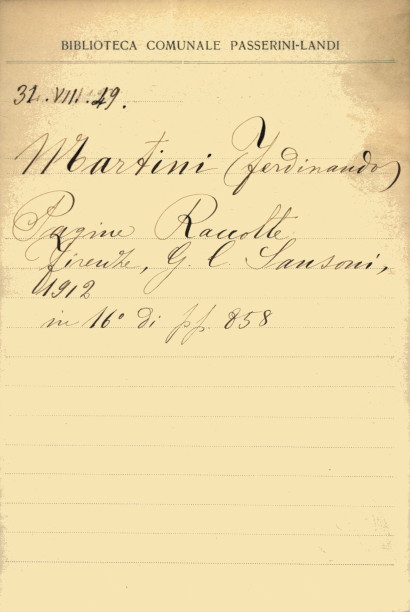 BIBLIOTECA COMUNALE PASSERINI-LANDI
31. VIII. 29.
Martini (Ferdinando)
Pagine Raccolte
Firenze, G. C. Sansoni,
1912
in 16° di pp. 858